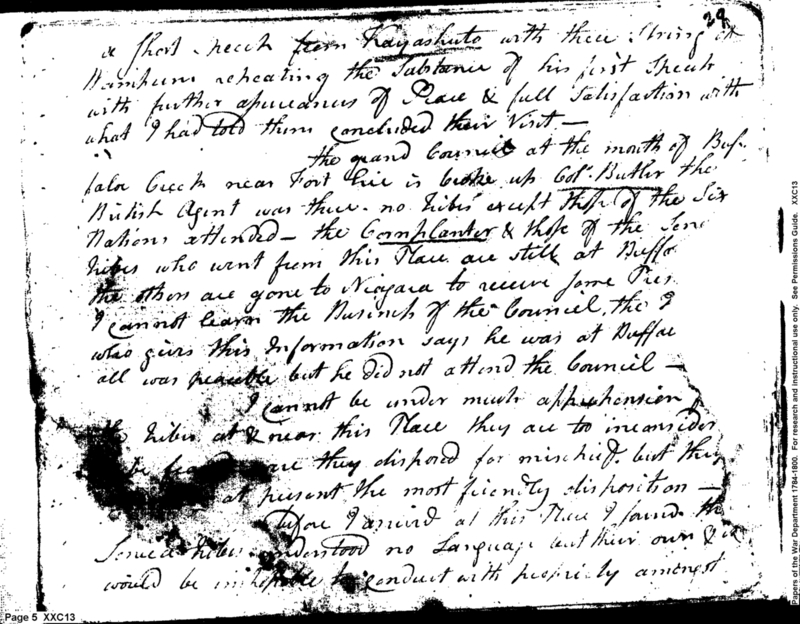 38
a short speech from Kayashuto with three Strings of
Wampum repeating the Substance of his first Speech
with further assurances of Peace & full Satisfaction with
what I had told them concluded their Visit —
the grand Council at the mouth of Buf-
faloe Creek near Fort Erie is broke up Col. Butler the
British Agent was there. no tribes except those of the Six
Nations attended — the Cornplanter & those of the Sene
tribes who went from this Place are still at Buffa
the others are gone to Niagara to receive some Pres
I cannot learn the Business of the Council, the I
who gives this Information says he was at Buffal
all was peaceable but he did not attend the Council —
I cannot be under much apprehension
the tribes at & near this Place they are to inconsider
are they disposed for mischief. but they
at present the most friendly disposition —
before I arrived at this Place I found the
Seneca tribes understood no Language but their own &
would be impossible to conduct with propriety amongst
Page 5 XXC13
Papers of the War Department 1784-1800. For research and instructional use only. See Permissions Guide. XXC13